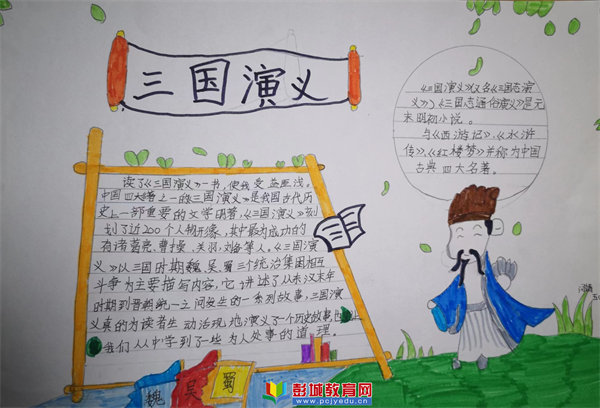 三国演义
《三国演义》(又名《三国志演
义》、《三国志通俗演义》)是元
末明初小说。
与《西游记》、《水浒
传》、《红楼梦》并称为中国
古典四大名著。
读了《三国演义》一书，使我受益匪浅。
中国四大名著之一的《三国演义》是我国古代历
史上一部重要的文学明著，《三国演义》刻
划了近200个人物形象，其中最为成功的
有诸葛亮、曹操、关羽、刘备等人。《三国演
义》以三国时期魏、吴、蜀三个统治集团相互
斗争为主要描写内容，它讲述了从东汉末年
时期到晋朝统一之间发生的一系列故事，三国演
义真的为读者生动活现地演义了一个历史故事
我们从中学到了一些为人处事的道理。
魏 吴 蜀
彭城教育网
www.pcjyedu.cn